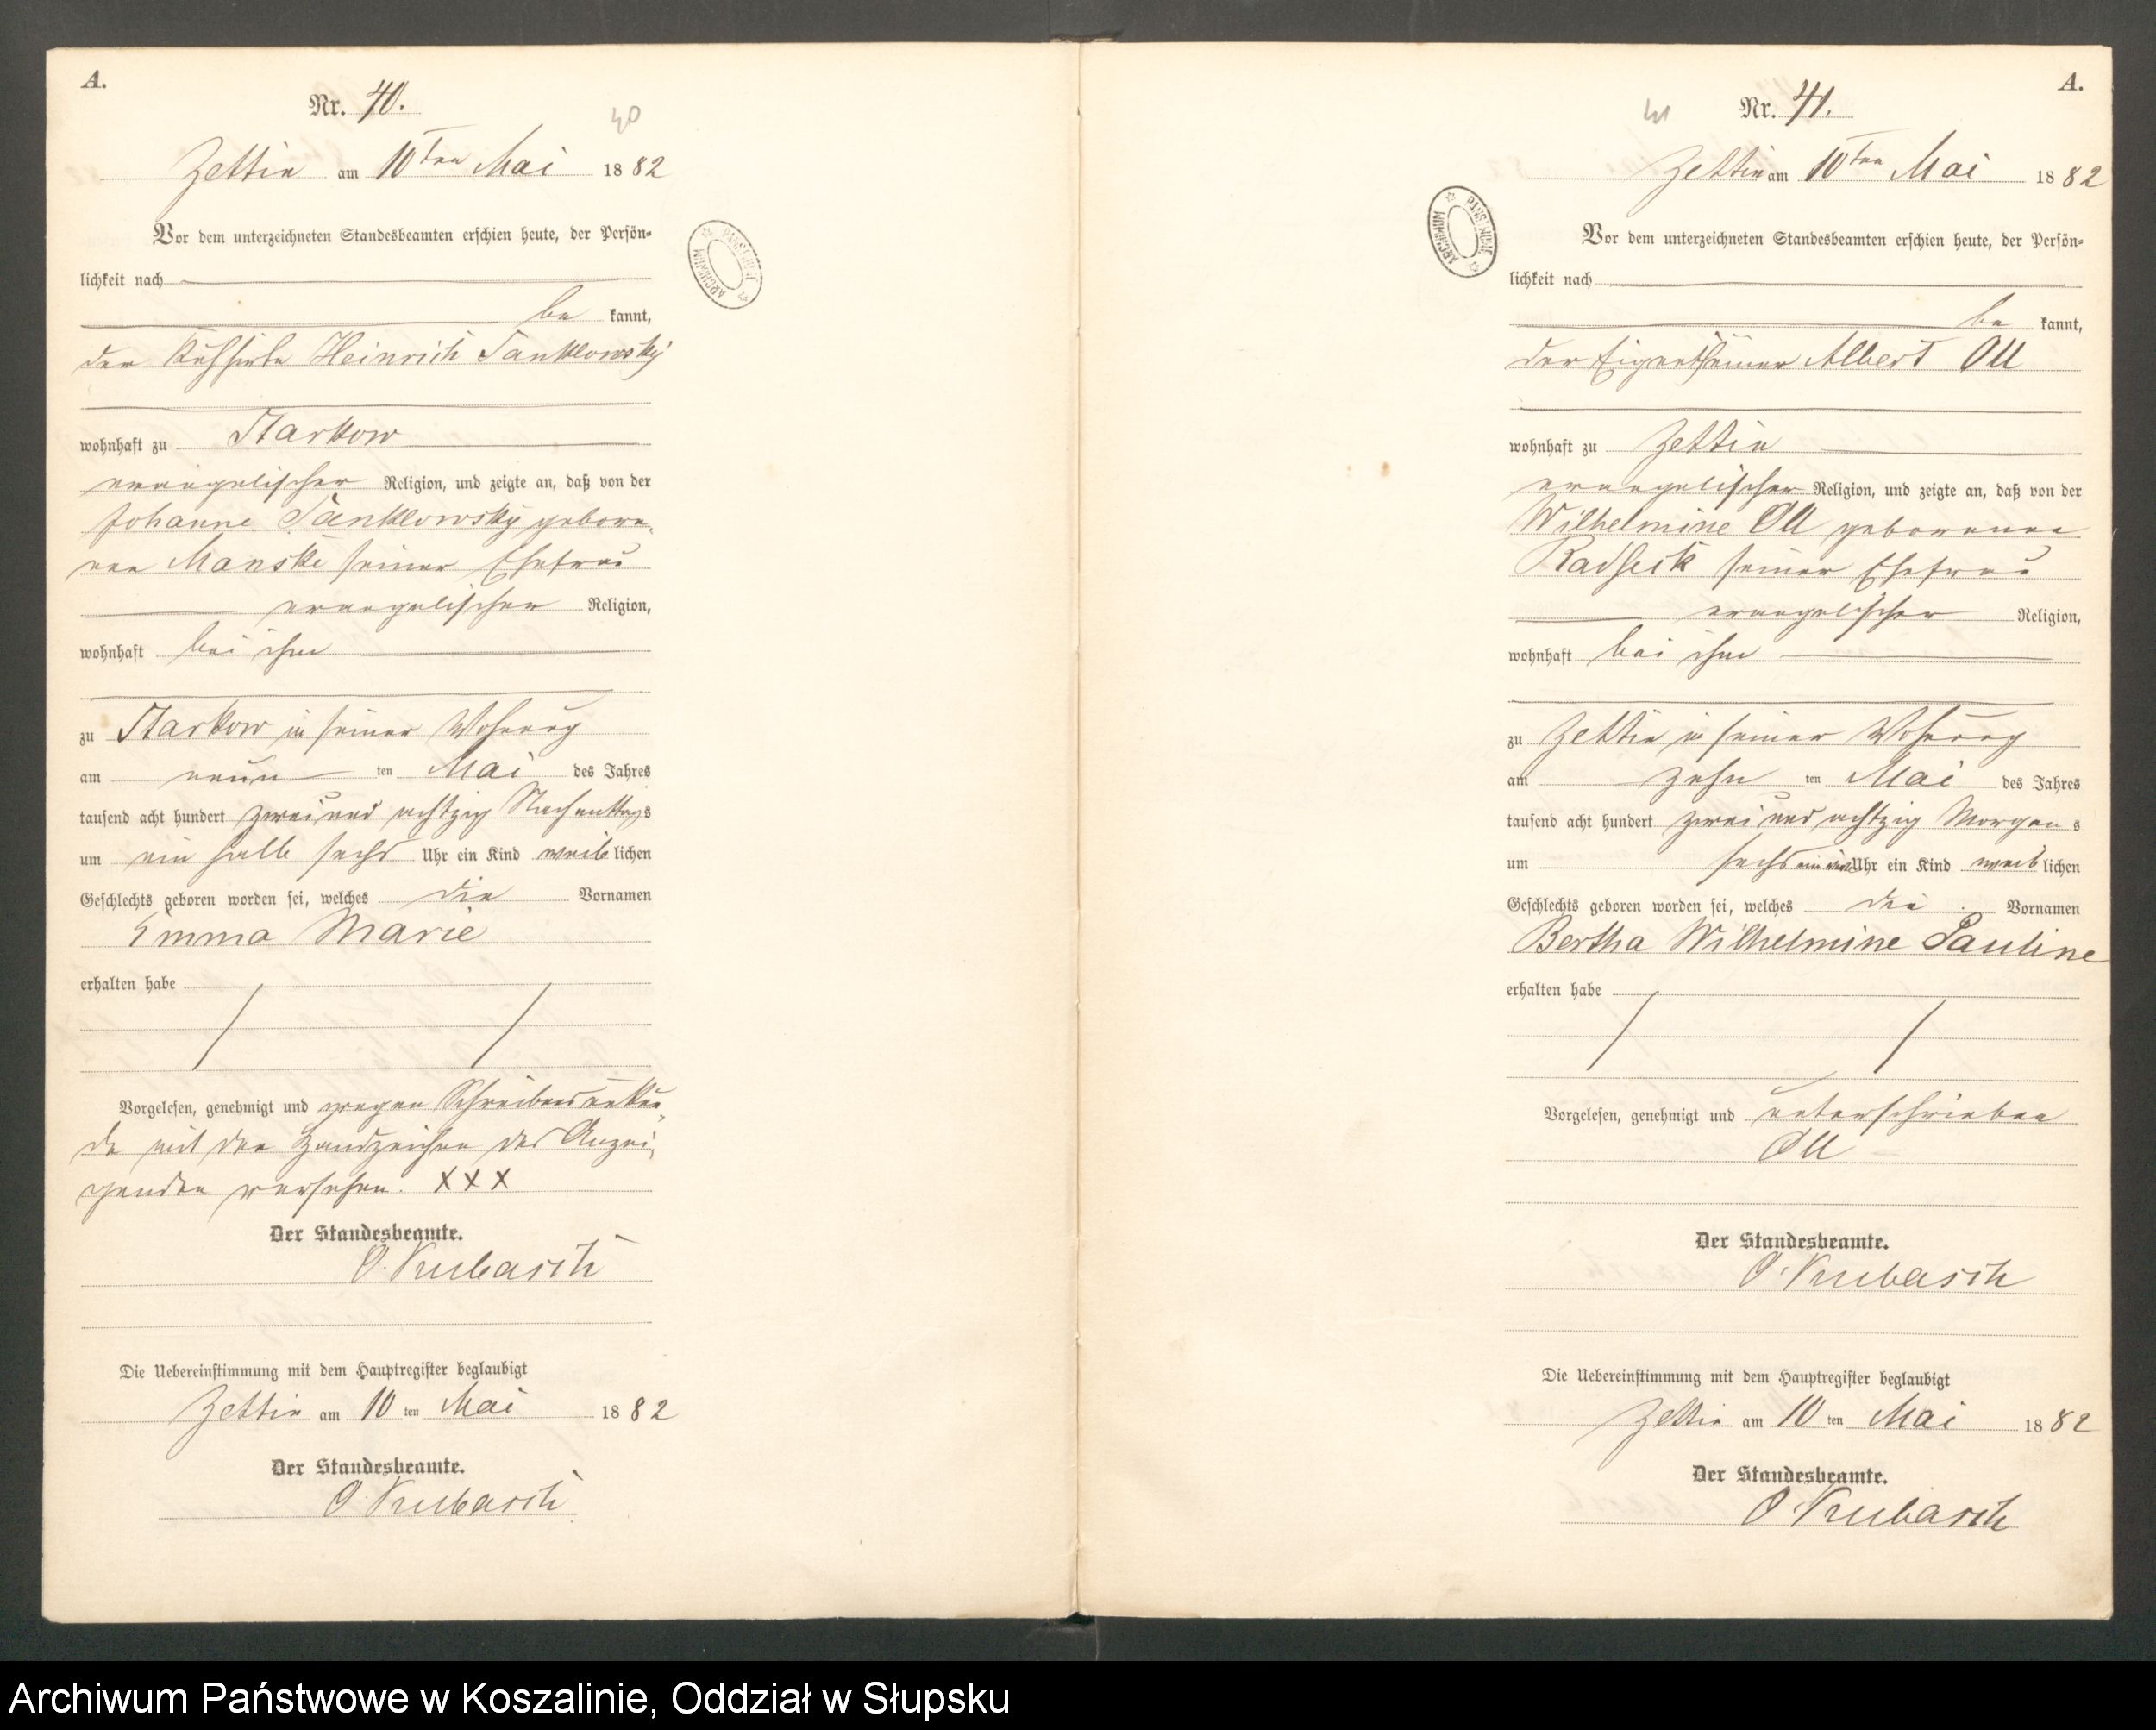 A.
Nr. 40.
40
Zettin am 10ten Mai 1882
Vor dem unterzeichneten Standesbeamten erschien heute, der Persön=
lichkeit nach
be kannt,
der Kuhhirte Heinrich Panklowsky
wohnhaft zu Starkow
evangelischer Religion, und zeigte an, daß von der
Johanne Panklowsky gebore-
nen Manske seiner Ehefrau
evangelischer Religion,
wohnhaft bei ihm
zu Starkow in seiner Wohnung
am neun ten Mai des Jahres
tausend acht hundert zwei und achtzig Nachmittags
um ein halb sechs Uhr ein Kind weiblichen
Geschlechts geboren worden sei, welches die Vornamen
Emma Marie
erhalten habe
Vorgelesen, genehmigt und wegen Schreibensunkun-
de mit den Handzeichen des Anzei-
genden versehen. XXX
Der Standesbeamte.
O. Krubasch
Die Uebereinstimmung mit dem Hauptregister beglaubigt
Zettin am 10 ten Mai 1882
Der Standesbeamte.
O. Krubasch
ARCHIWUM PAŃSTWOWE
A.
Nr. 41.
41
Zettin am 10ten Mai 1882
Vor dem unterzeichneten Standesbeamten erschien heute, der Persön=
lichkeit nach
be kannt,
der Eigenthümer Albert Oll
wohnhaft zu Zettin
evangelischer Religion, und zeigte an, daß von der
Wilhelmine Oll geborenen
seiner Ehefrau
evangelischer Religion,
wohnhaft bei ihm
zu Zettin in seiner Wohnung
am zehn ten Mai des Jahres
tausend acht hundert zwei und achtzig Morgens
um sechs Uhr ein Kind weiblichen
Geschlechts geboren worden sei, welches die Vornamen
Bertha Wilhelmine Pauline
erhalten habe
Vorgelesen, genehmigt und unterschrieben
Oll
Der Standesbeamte.
O. Krubasch
Die Uebereinstimmung mit dem Hauptregister beglaubigt
Zettin am 10 ten Mai 1882
Der Standesbeamte.
O. Krubasch
ARCHIWUM PAŃSTWOWE
Archiwum Państwowe w Koszalinie, Oddział w Słupsku